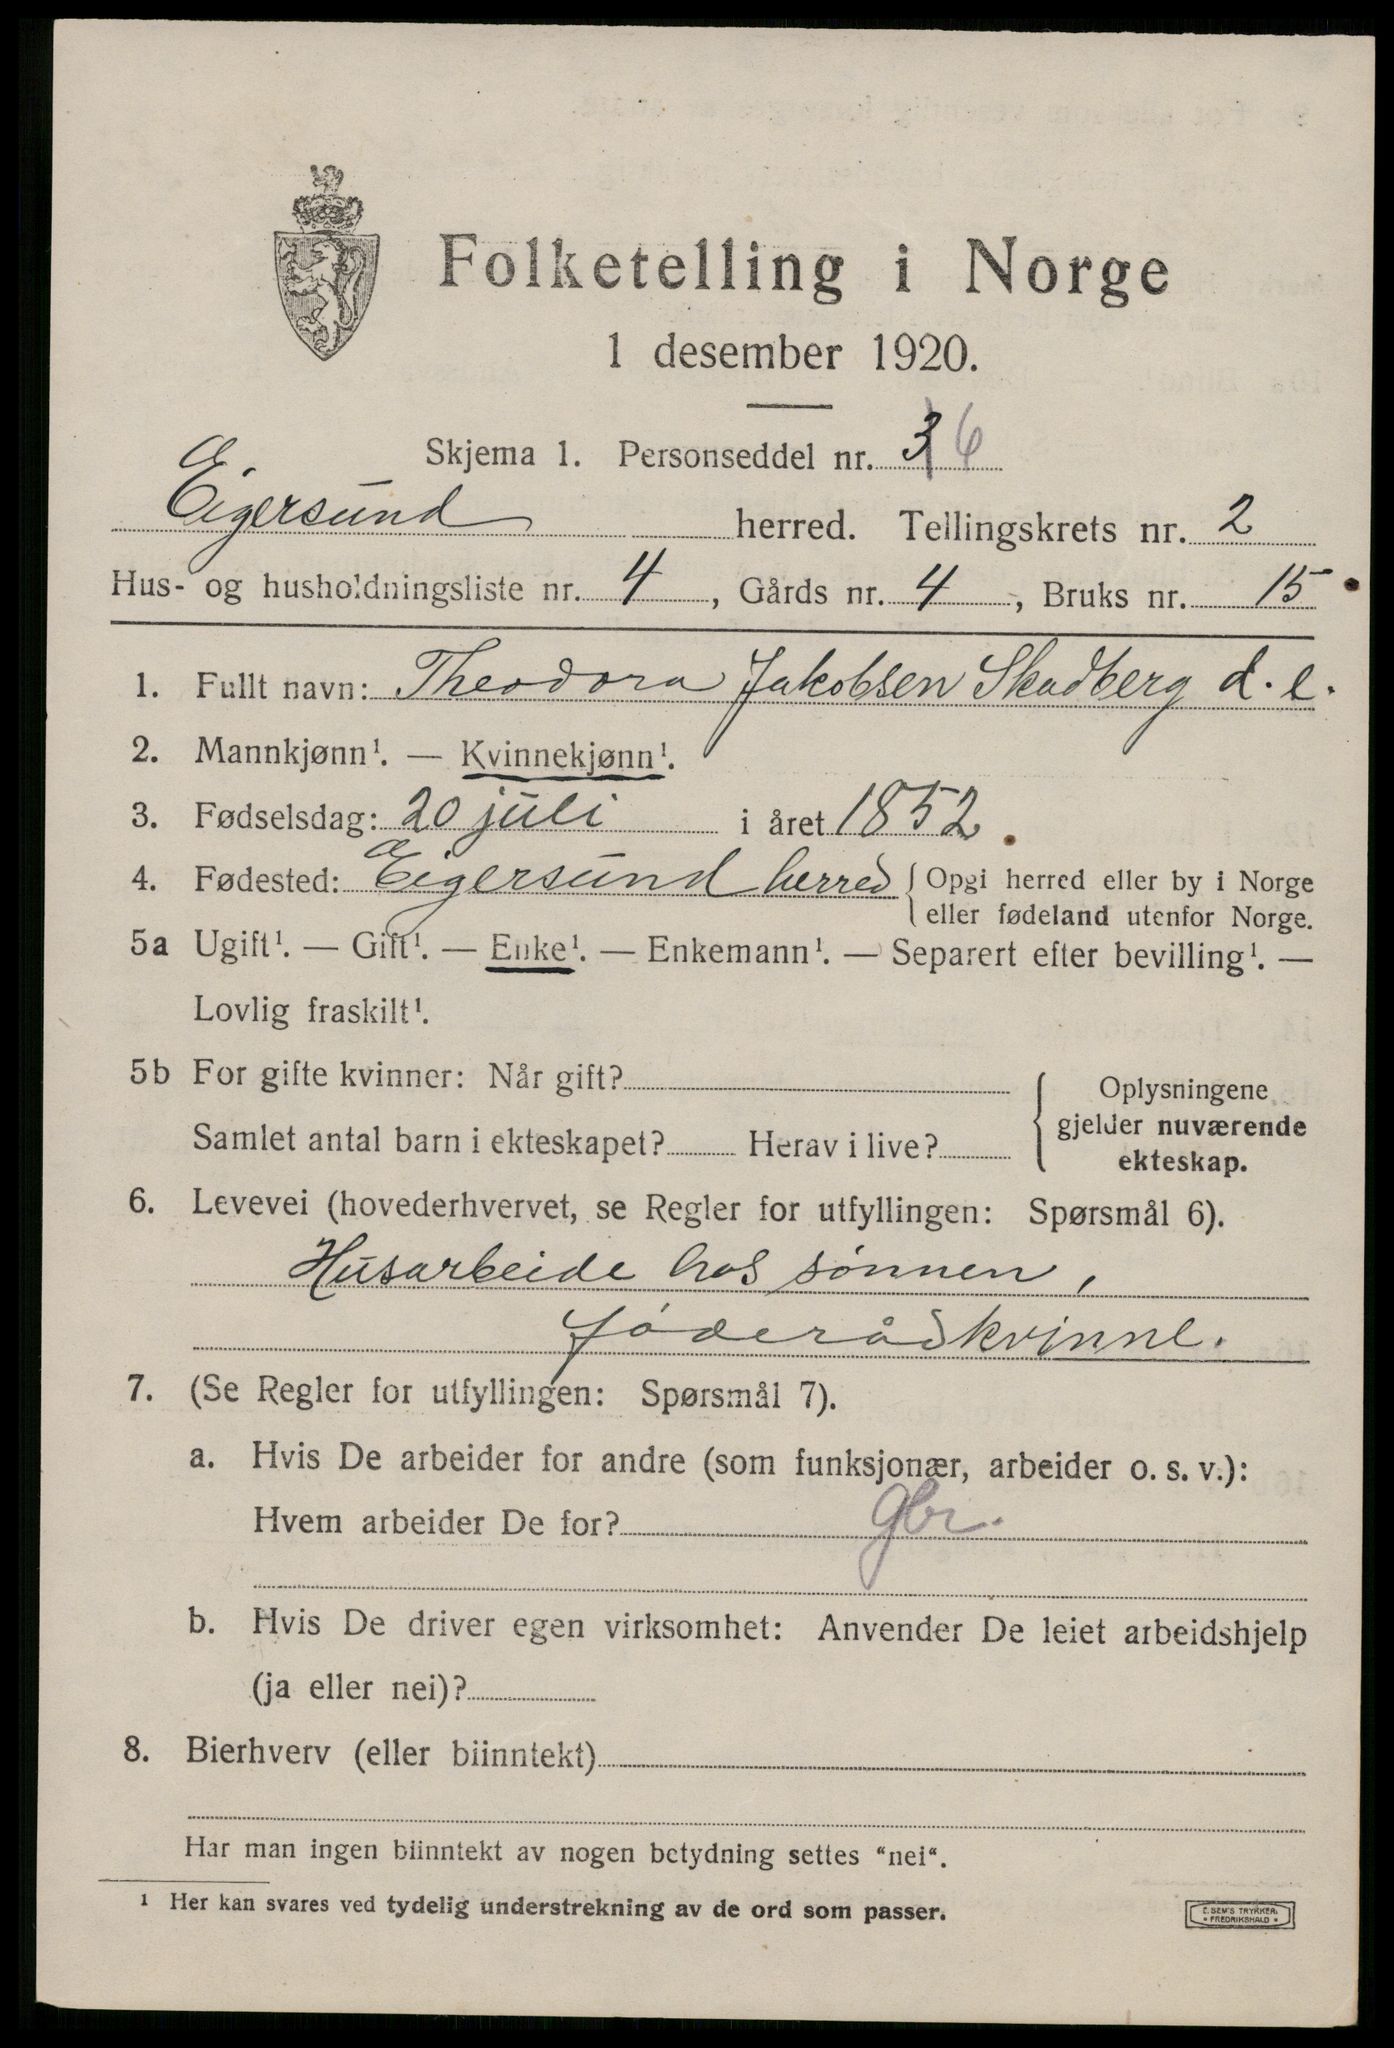 Folketelling i Norge
1 desember 1920.
Skjema 1. Personseddel nr. 3 6
Eigersund herred. Tellingskrets nr. 2
Hus- og husholdningsliste nr. 4, Gårds nr. 4, Bruks nr. 15
1. Fullt navn: Theodora Jakobsen Skadberg d. e.
2. Mannkjønn¹. — Kvinnekjønn¹.
3. Fødselsdag: 20 juli i året 1852.
4. Fødested: Eigersund herred { Opgi herred eller by i Norge
eller fødeland utenfor Norge.
5a Ugift¹. — Gift¹. — Enke¹. — Enkemann¹. — Separert efter bevilling¹. —
Lovlig fraskilt¹.
5b For gifte kvinner: Når gift?
Samlet antal barn i ekteskapet? Herav i live?
Oplysningene
gjelder nuværende
ekteskap.
6. Levevei (hovederhvervet, se Regler for utfyllingen: Spørsmål 6).
Husarbeide hos sønnen,
føderådkvinne.
7. (Se Regler for utfyllingen: Spørsmål 7).
a. Hvis De arbeider for andre (som funksjonær, arbeider o. s. v.):
Hvem arbeider De for? Gbr.
b. Hvis De driver egen virksomhet: Anvender De leiet arbeidshjelp
(ja eller nei)?
8. Bierhverv (eller biinntekt)
Har man ingen biinntekt av nogen betydning settes "nei".
¹ Her kan svares ved tydelig understrekning av de ord som passer.
E. SEM'S TRYKKERI
• FREDRIKSHALD •